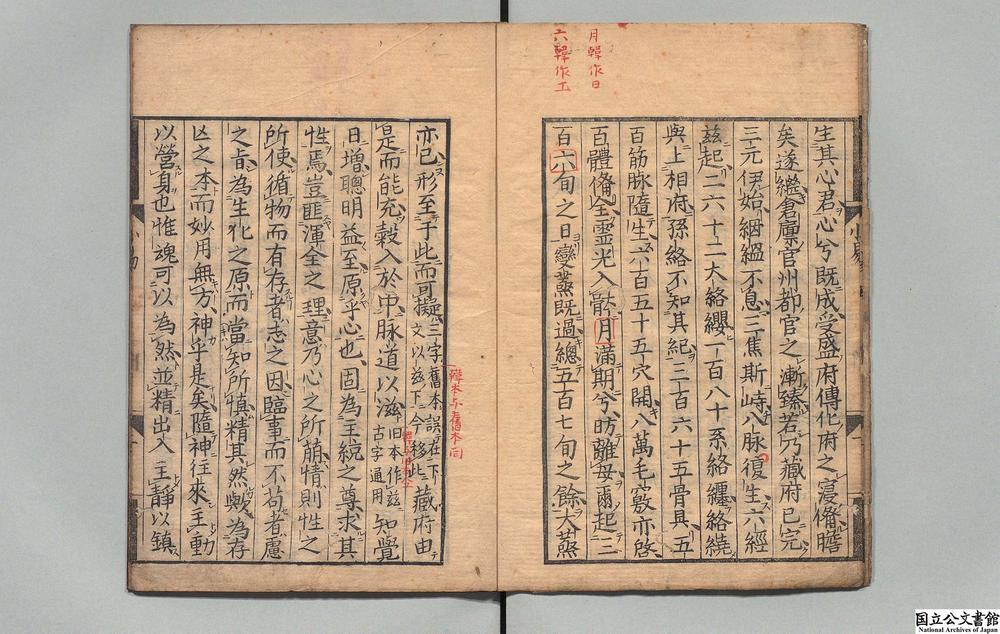 月韓作日
六韓作工
生其心君心兮既成受盛府傳化府之寖備瞻
矣遂繼倉廪官州都官之漸臻若乃藏府已完
三元伊始絪緼不息三焦斯峙八脉復生六經
玆起二六十二大絡纓一百八十系絡纏絡繞
與上相府孫絡不知其紀三百六十五骨具五
百筋脉隨生六百五十五穴開八萬毛竅亦啓
百體備全靈光入骸月滿期兮昉離母爾起三
百六旬之日變蒸既過總五百七旬之餘大蒸
亦已形至于此而可擬三字舊本誤在下文以玆下今移此藏府由
是而能充穀入於中脉道以滋旧本作玆古字通用知覺
日增聰明益至原乎心也固為主統之尊求其
性焉豈匪渾全之理意乃心之所萠情則性之
所使循物而有存者志之因臨事而不苟者慮
之音為生化之原而當知所慎精其然歟為存
亾之本而妙用無方神乎是矣隨神往來主動
以營身也惟魂可以為然並精出入主靜以鎮
韓本与舊本同
小易
国立公文書館
National Archives of Japan